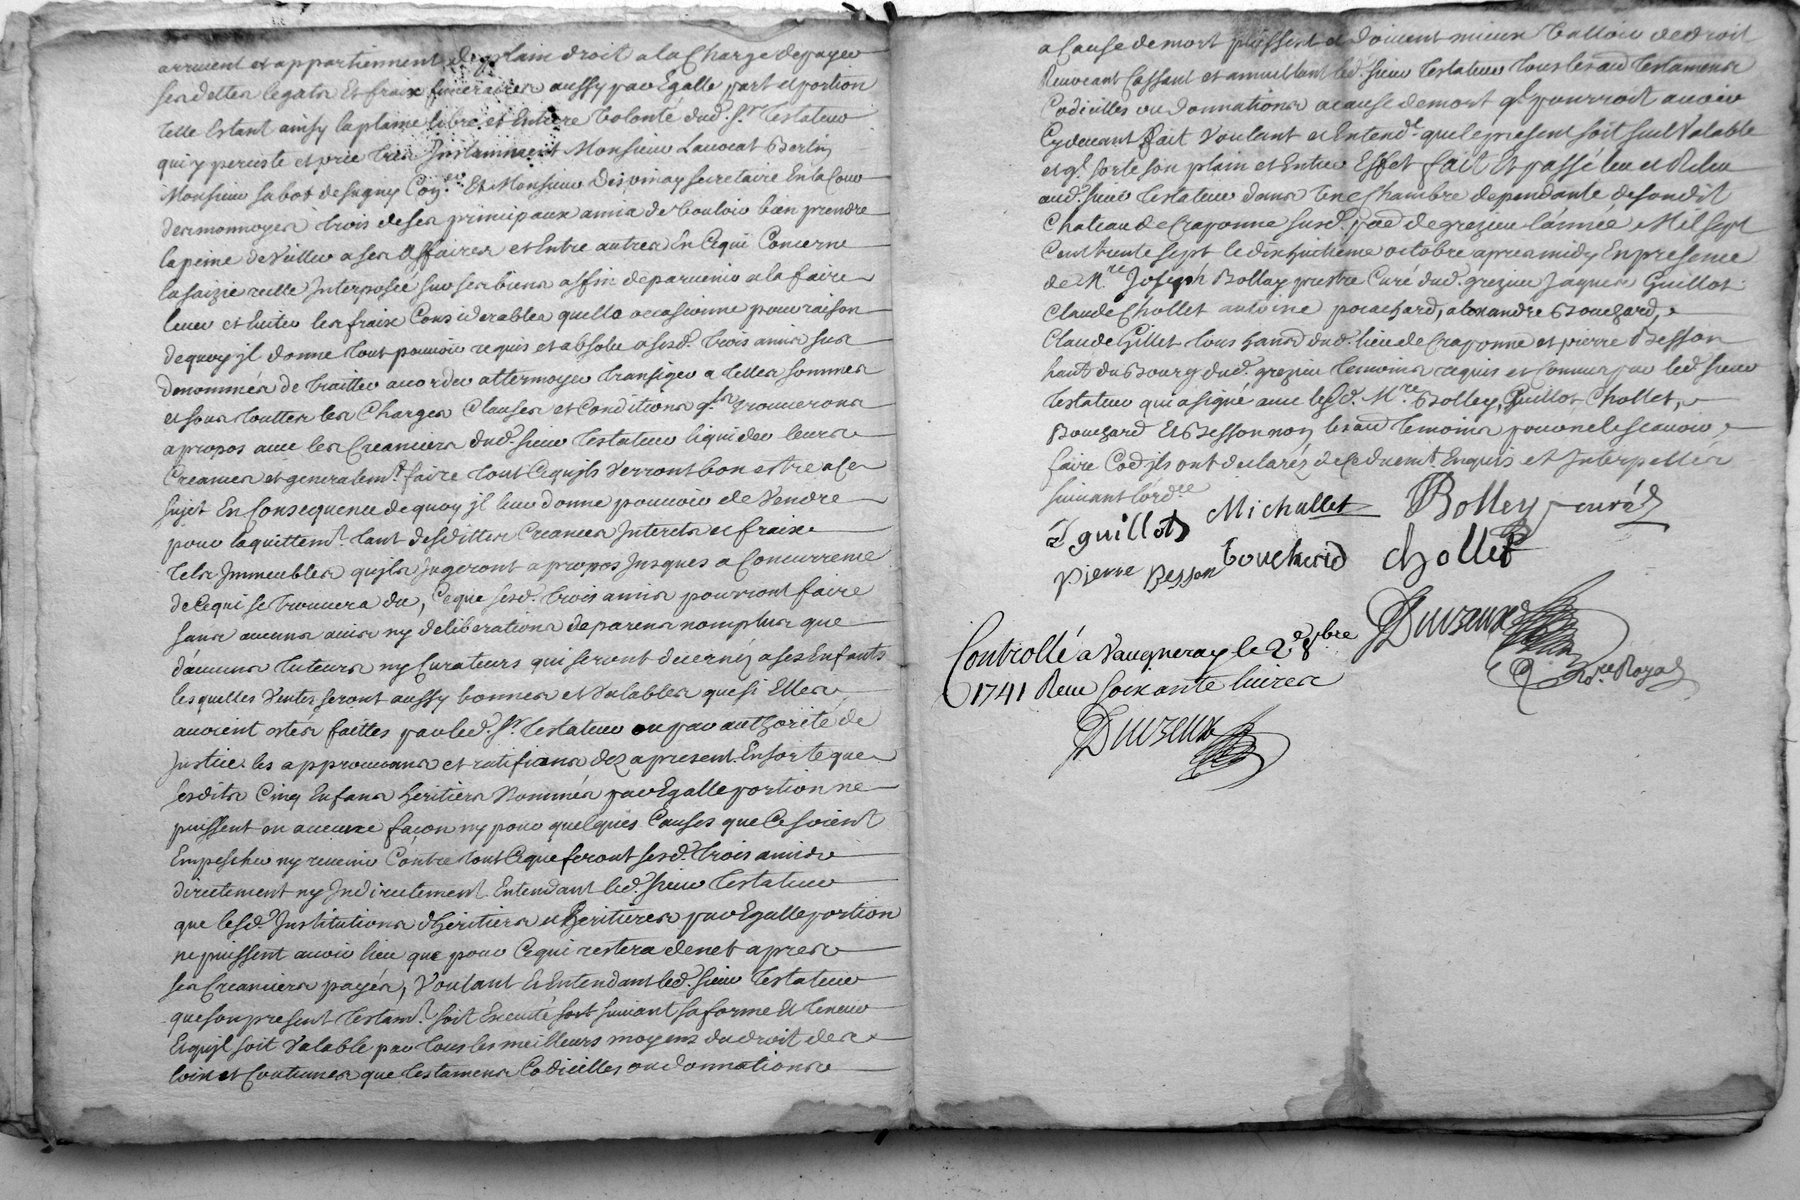 arrivent et appartiennent de plain droit a la Charge de payer
ses dettes legats Et fraix funeraires aussy par Egalle part et portion
telle Estant ainsy la plaine libre et Entiere volonté dud. Sr. Testateur
qui y persiste et prie tres Instamment Monsieur Lauocat Berlin
Monsieur Sabot de sugny Et Monsieur Despinay secretaire En la Cour
des monnoyes trois de ses principaux amis de vouloir bien prendre
la peine de Veiller a ses Affaires et Entre autres En Cequi Concerne
la saizie reelle Interposée sur ses biens affin de paruenir a la faire
leuer et Euiter les fraix Considerables quelle occasionne pour raison
dequoy jl donne tout pouuoir requis et absolu a sesd. trois amis sus
denommés de traitter accorder attermoyer transiger a telles sommes
et sous touttes les Charges Clauses et Conditions qls. trouuerons
apropos auec les Creanciers dud. sieur Testateur liquider leurs
Creances et generalemt. faire tout Cequjls Verront bon estre a Ce
sujet En Consequence dequoy jl leur donne pouuoir de Vendre
pour laquittemt. tant desdittes Creances Interets et fraix
tels Jmmeubles qujls Jugeront apropos Jusques a Concurrence
de Cequi se trouuera du, Ceque sesd. trois amis pourront faire
sans aucuns auis ny deliberations de parens nomplus que
d'aucuns tuteurs ny Curateurs qui seront decernéz a ses Enfants
lesquelles Ventes seront aussy bonnes et Valables que si Elles
auoient estés faittes par led. Sr. Testateur ou par authorité de
Justice les approuuans et ratifians dez apresent Ensorte que
sesdits Cinq Enfans heritiers Nommés par Egalle portion ne
puissent en aucune façon ny pour quelques Causes que Ce soient
Empescher ny reuenir Contre tout Ceque feront sesd. trois amis
directement ny Indirectement Entendant led. sieur Testateur
que lesd. Institutions d'heritiers et heritieres par Egalle portion
ne puissent auoir lieu que pour Cequi restera de net apres
ses Creanciers payés, Voulant Et Entendant led. sieur Testateur
que son present testamt. soit Executé sort suiuant sa forme Et teneur
Et qujl soit Valable par tous les meilleurs moyens du droit des
loix et Coutumes que testamens Codicilles ou donnations
a Cause de mort puissent et doiuent mieux Valloir de droit
Reuocant Cassant et annullant led. sieur Testateur tous les au. testamens
Codicilles ou donnations a cause de mort ql. pourroit auoir
Cydeuant fait Voulant et Entendt. que le present soit seul Valable
et ql. sorte son plain et Entier Effet fait Et passé leu et Releu
aud. sieur Testateur dans une Chambre dependante de sondit
Chateau de Craponne susd. pad. de grezieu l'année Mil sept
Cent trente sept le dix huitieme octobre apres midy En presence
de Mre. Joseph Bolley prestre Curé dud. grezieu Jaques Guillot
Claude Chollet antoine pouchard, alexandre Bouchard,
Claude Gillet tous habs. dud. lieu de Craponne et pierre Besson
habt. du Bourg dud. grezieu temoins requis et Connus par led. sieur
Testateur qui a signé auec lesd. Mre. Bolley, Guillot Chollet,
Bouchard Et Besson non les au. temoins pour ne le scauoir
faire Côe. jls ont declaréz de Ce duemt. Enquis et Interpellés
suiuant l'ordce
J guillot Michallet Bolley curé
pierre Besson bouchard chollet
Controllé a Vaugneray le 2e. 8bre Duuzeux
1741 Receu soixante liures Nore. Royal
Duuzeux